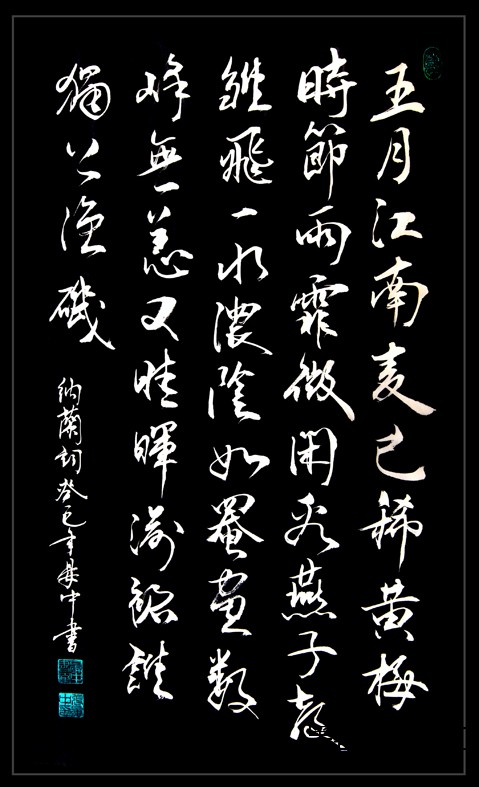 五月江南麦已稀黄梅
時節雨霏微閑看燕子教
雛飛一水濃陰如罨畫數
峰無恙又晴暉湔裙誰
獨上漁磯
納蘭詞癸巳年中書